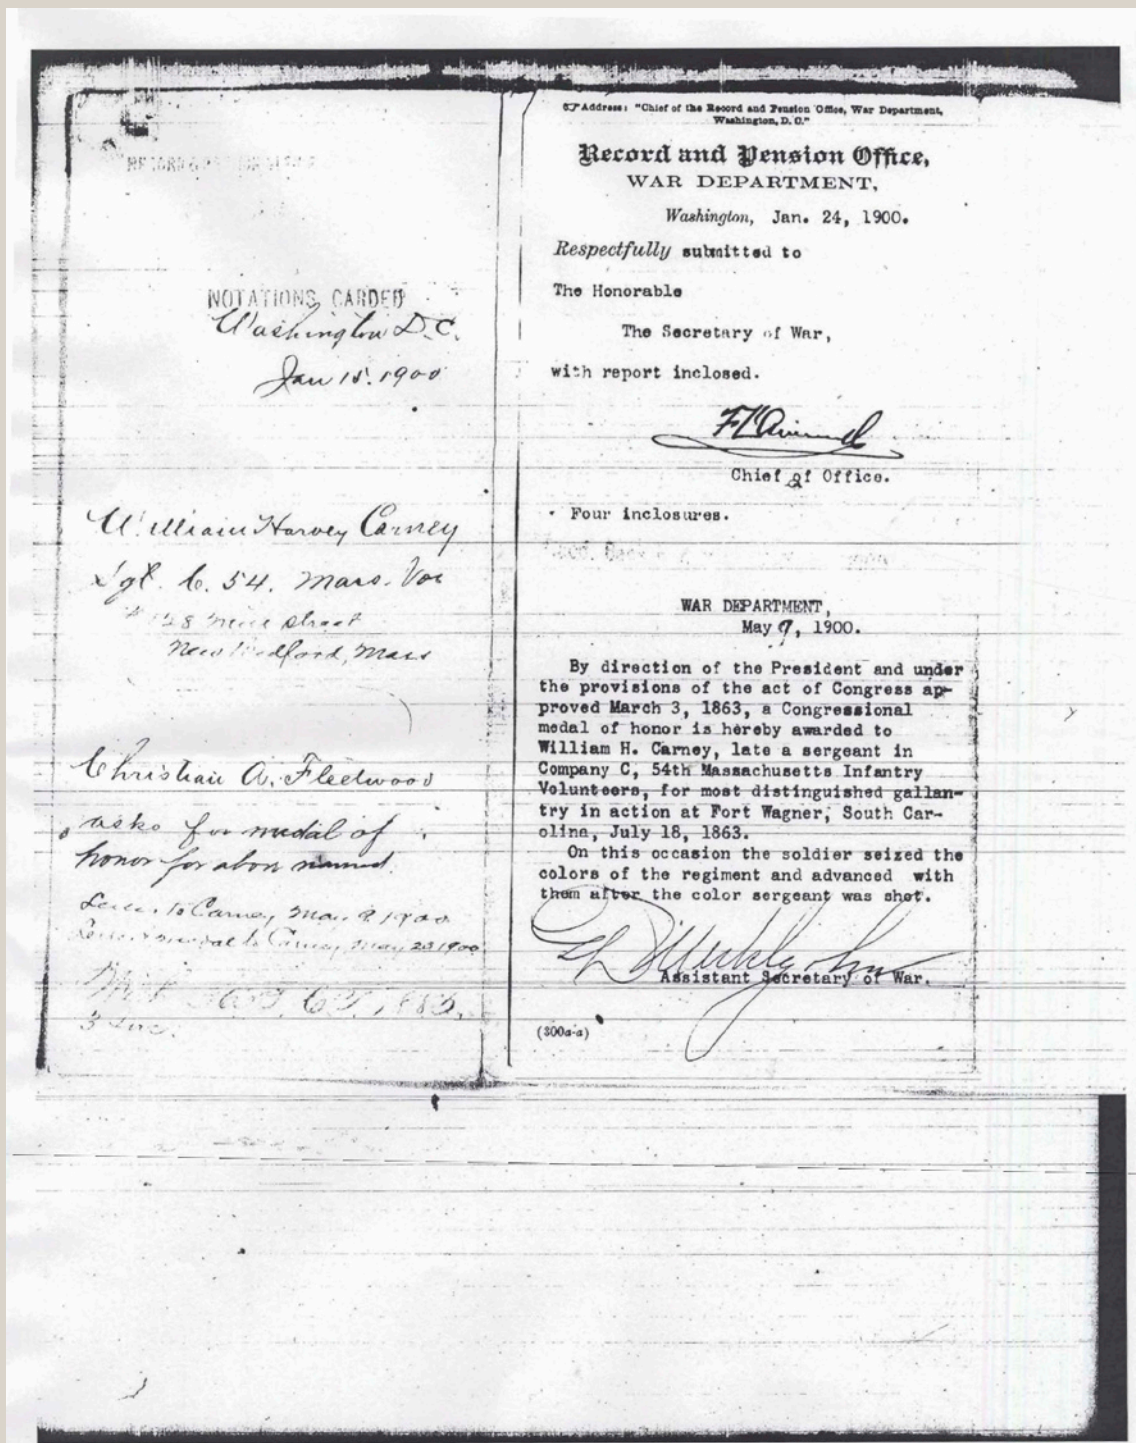 NOTATIONS CARDED
Washington D.C.
Jan 15. 1900
William Harvey Carney
Sgt. C. 54. Mass. Vol
128 Street
New Bedford, Mass
Christian A. Fleetwood
asks for medal of
honor for above named.
to Carney May 9 1900
medal to Carney, May 23 1900
Address: "Chief of the Record and Pension Office, War Department,
Washington, D. C."
Record and Pension Office,
WAR DEPARTMENT,
Washington, Jan. 24, 1900.
Respectfully submitted to
The Honorable
The Secretary of War,
with report inclosed.
Chief of Office.
Four inclosures.
WAR DEPARTMENT,
May 9, 1900.
By direction of the President and under
the provisions of the act of Congress ap-
proved March 3, 1863, a Congressional
medal of honor is hereby awarded to
William H. Carney, late a sergeant in
Company C, 54th Massachusetts Infantry
Volunteers, for most distinguished gallan-
try in action at Fort Wagner, South Car-
olina, July 18, 1863.
On this occasion the soldier seized the
colors of the regiment and advanced with
them after the color sergeant was shot.
Assistant Secretary of War.
(300a-a)